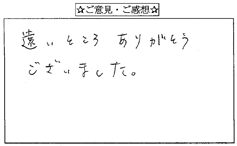 ☆ご意見・ご感想☆
遠いところ ありがとう
ございました。